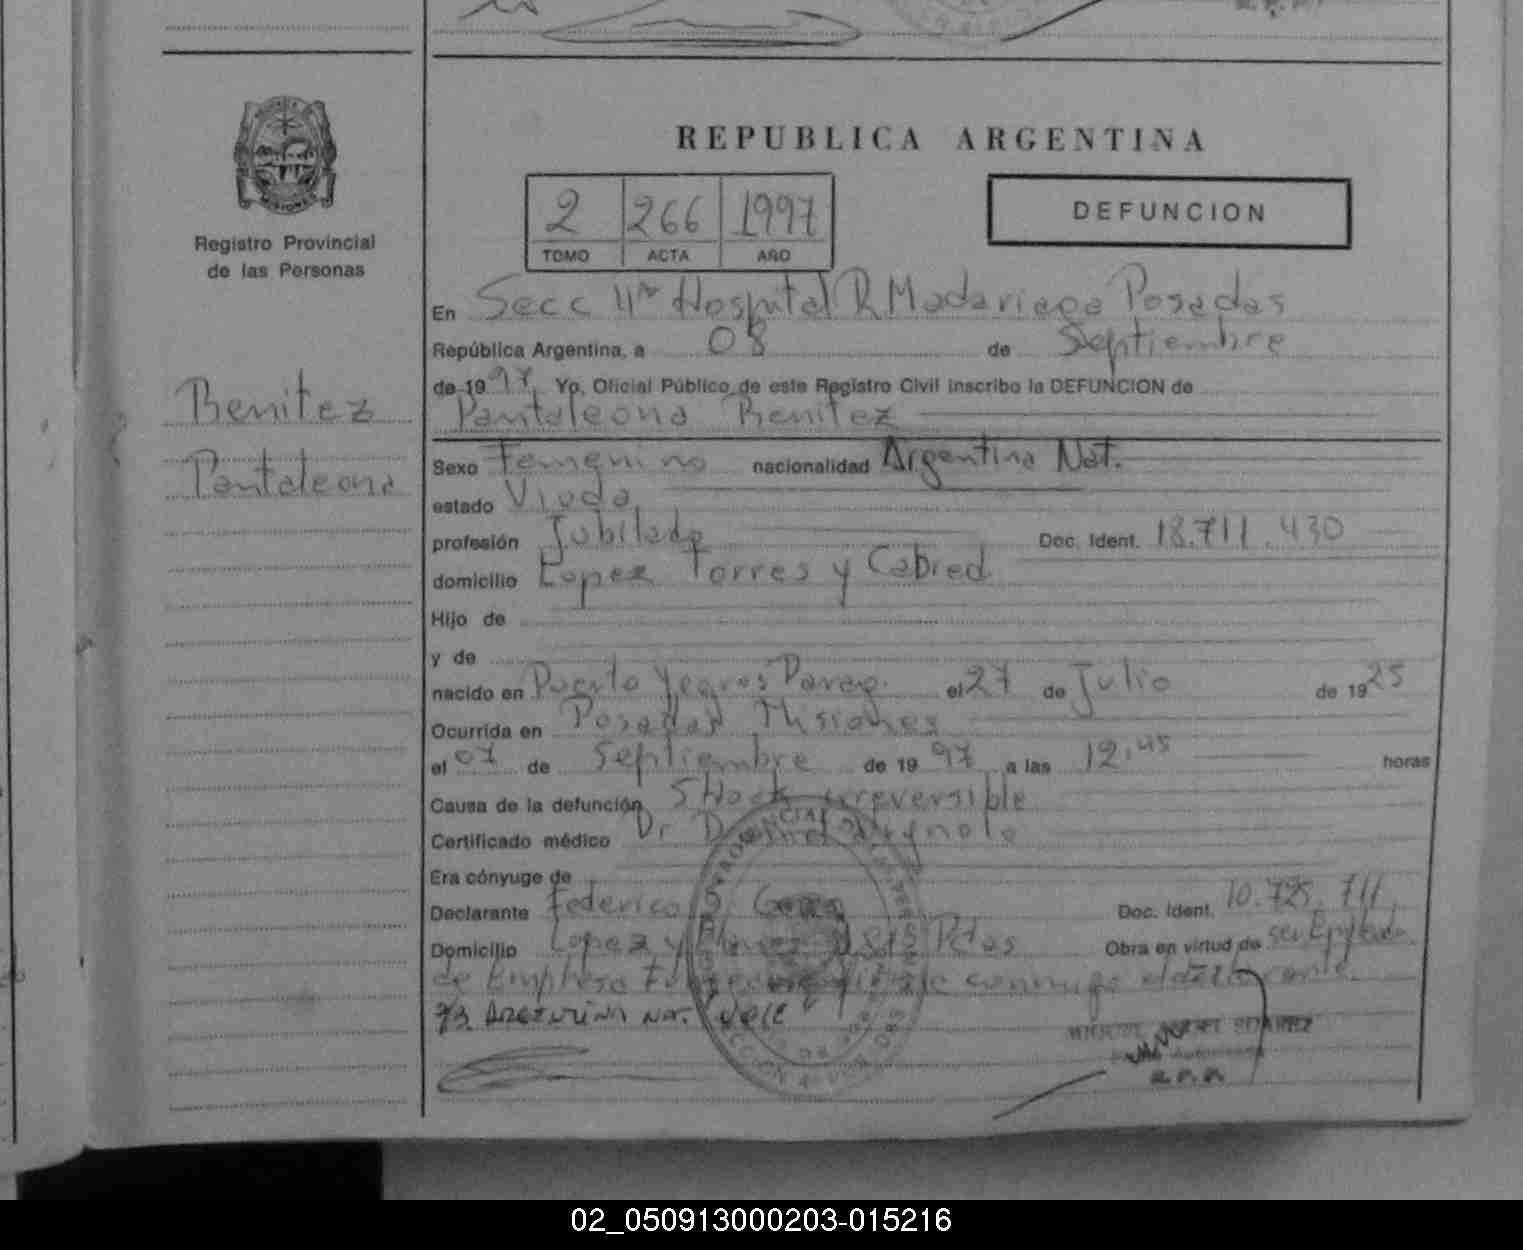 REPUBLICA ARGENTINA
2 266 1997
TOMO ACTA AÑO
DEFUNCION
Registro Provincial
de las Personas
Benitez
Pantaleona
En Secc 11ª Hospital R Madariaga Posadas
República Argentina, a 08 de Septiembre
de 1997. Yo, Oficial Público de este Registro Civil inscribo la DEFUNCION de
Pantaleona Benitez
Sexo Femenino nacionalidad Argentina Nat.
estado Viuda
profesión Jubilada Doc. Ident. 18.711.430
domicilio Lopez Torres y Cabred
Hijo de
y de
nacido en Puerto Yegros Parag. el 27 de Julio de 1925
Ocurrida en Posadas Misiones
el 07 de Septiembre de 1997 a las 12,45 horas
Causa de la defunción Shock irreversible
Certificado médico Dr
Era cónyuge de
Declarante Federico Doc. Ident. 10.725.711
Domicilio Lopez y Pdas Obra en virtud de ser Empleado
de Empresa conmigo el declarante.
Argentina Nat. Vale
02_050913000203-015216